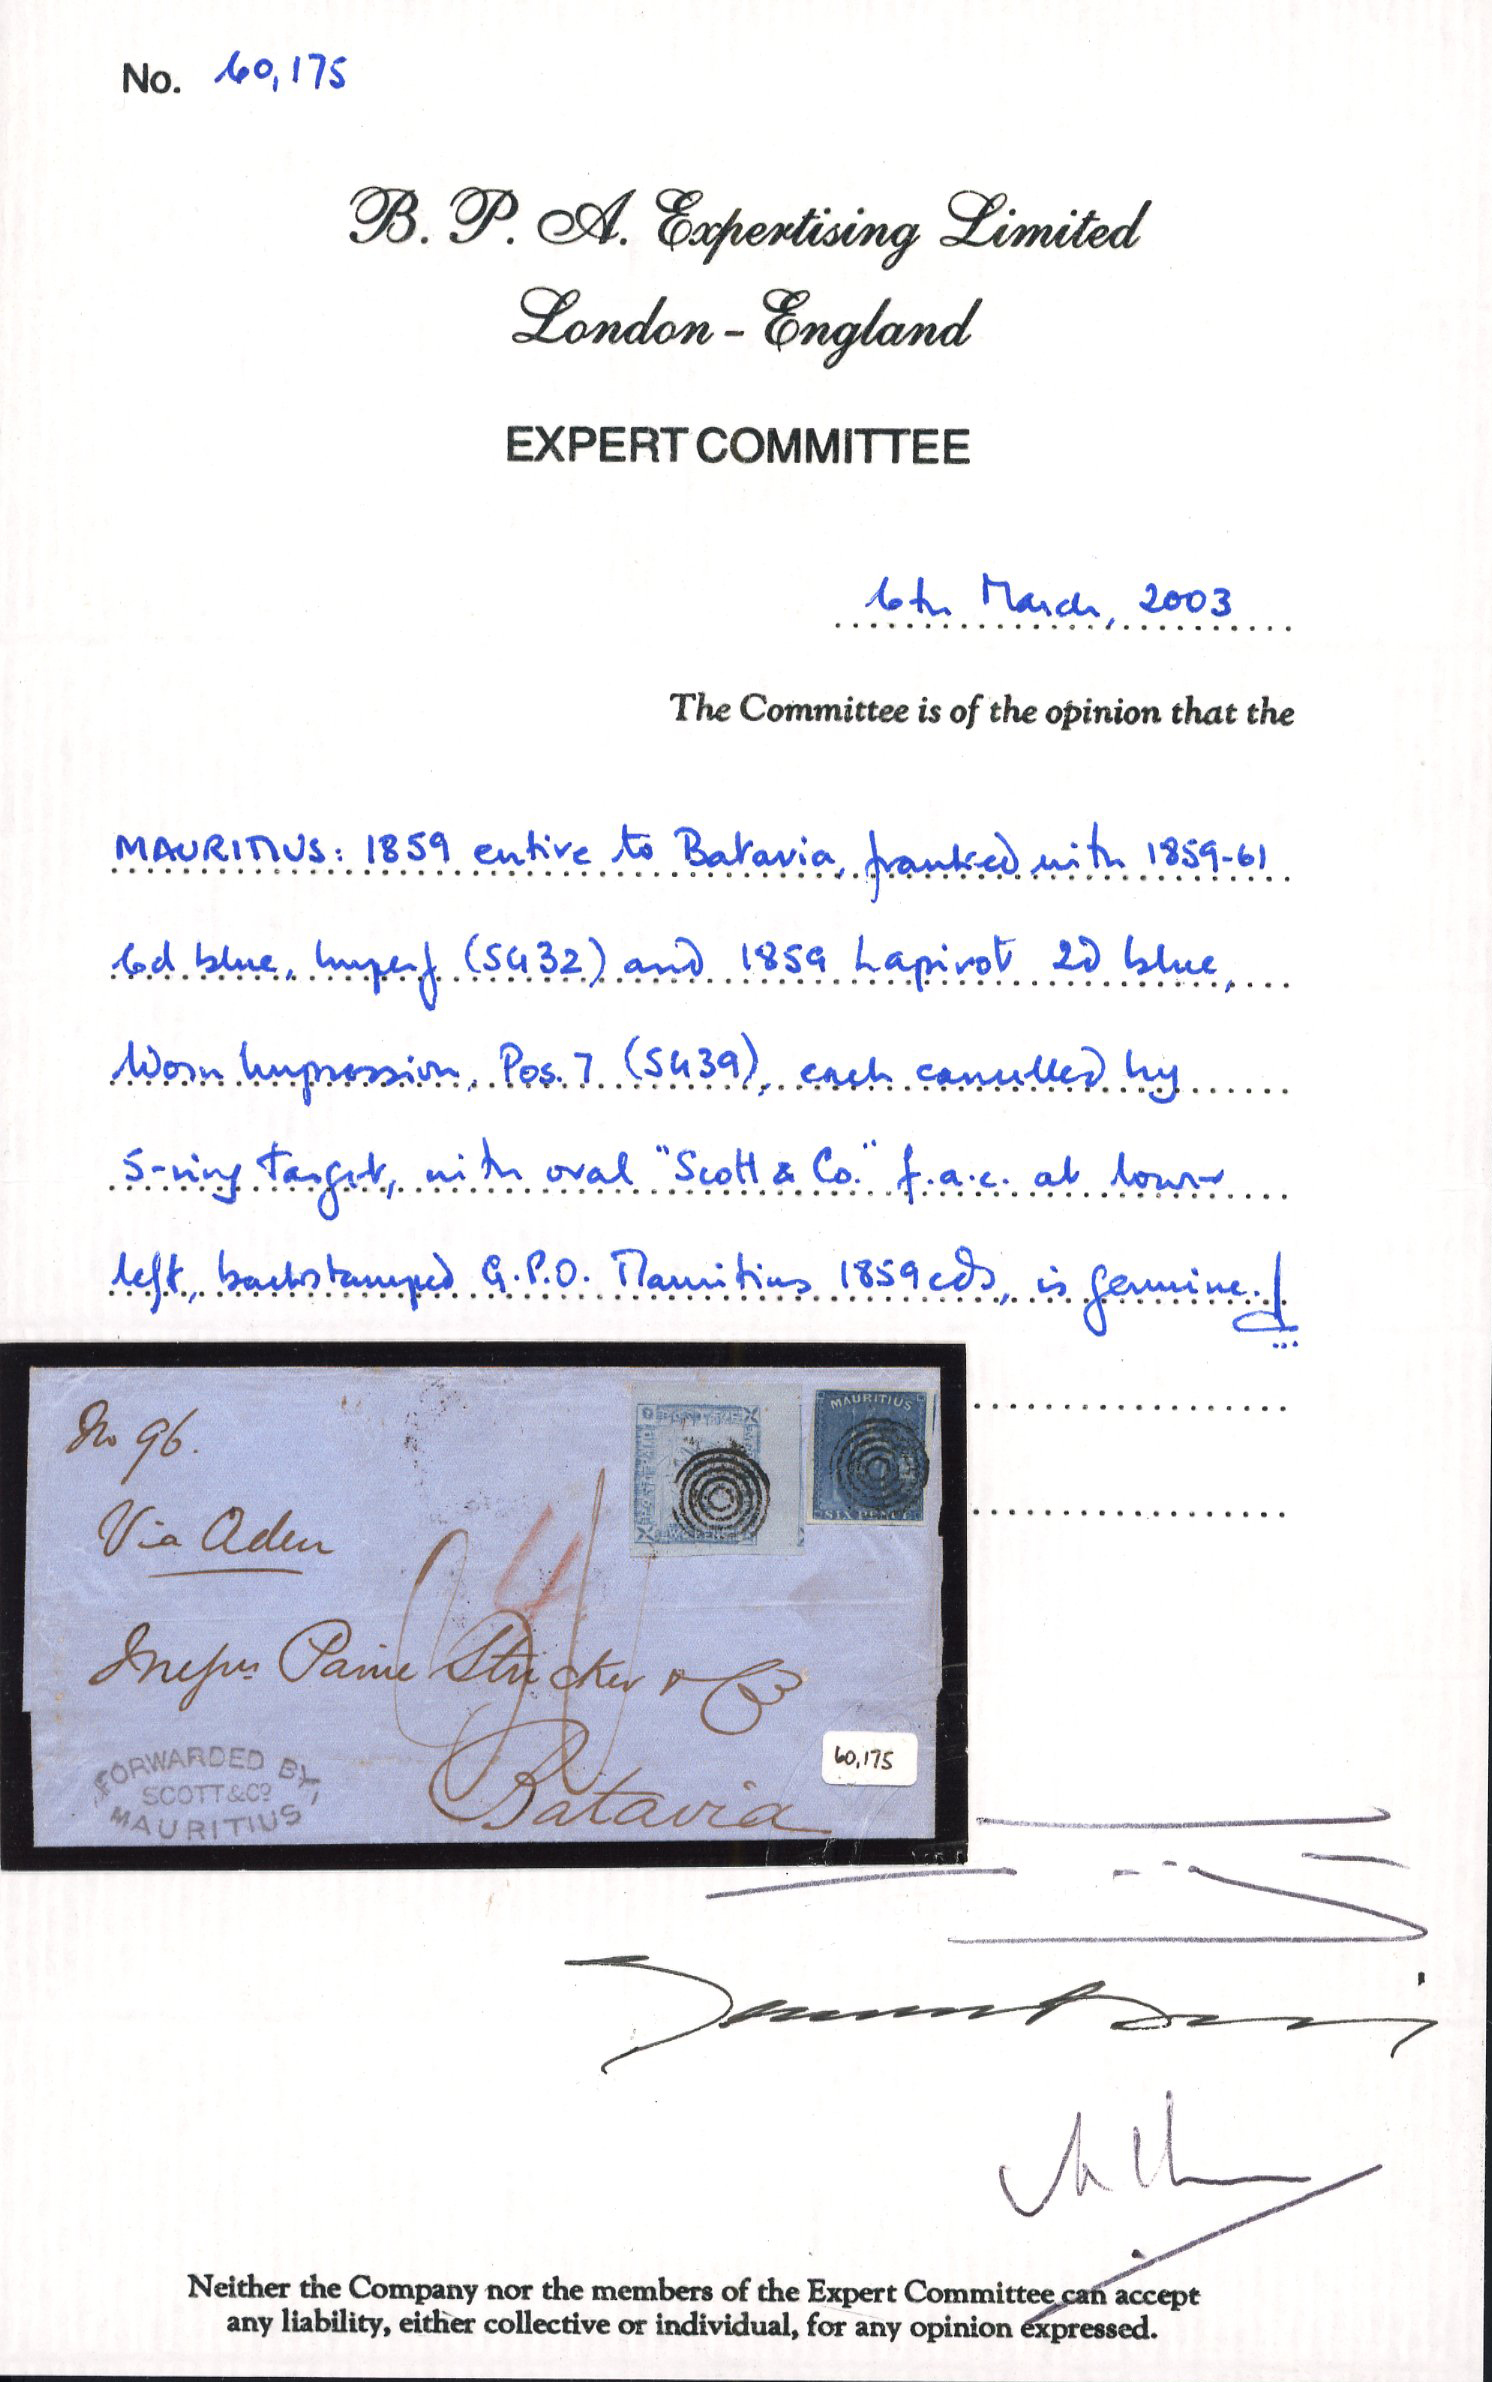 No. 60,175
B. P. A. Expertising Limited
London - England
EXPERT COMMITTEE
6th March, 2003
The Committee is of the opinion that the
MAURITIUS: 1859 entire to Batavia, franked with 1859-61
6d blue, Imperf (SG32) and 1859 Lapirot 2d blue,
Worn Impression, Pos. 7 (SG39), each cancelled by
5-ring target, with oral "Scott & Co." f.a.c. at lower
left, backstamped G.P.O. Mauritius 1859 cds, is genuine.
No 96.
Via Aden
MAURITIUS
SIX PENCE
Paine Stricker & Co
Batavia
FORWARDED BY
SCOTT & Co
MAURITIUS
60,175
Neither the Company nor the members of the Expert Committee can accept
any liability, either collective or individual, for any opinion expressed.